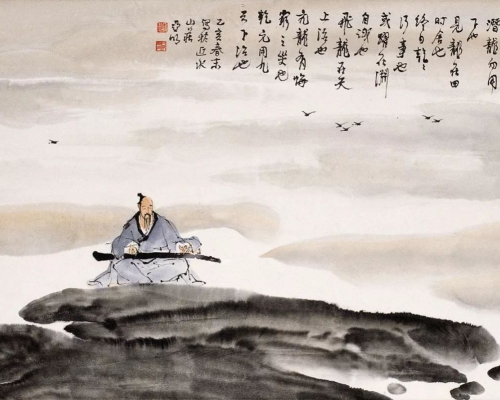 潛龍勿用
下也
見龍在田
時舍也
終日乾々
行事也
或躍在淵
自試也
飛龍在天
上治也
亢龍有悔
窮之災也
乾元用九
天下治也
乙亥春末
寫於近水
山莊
亞明